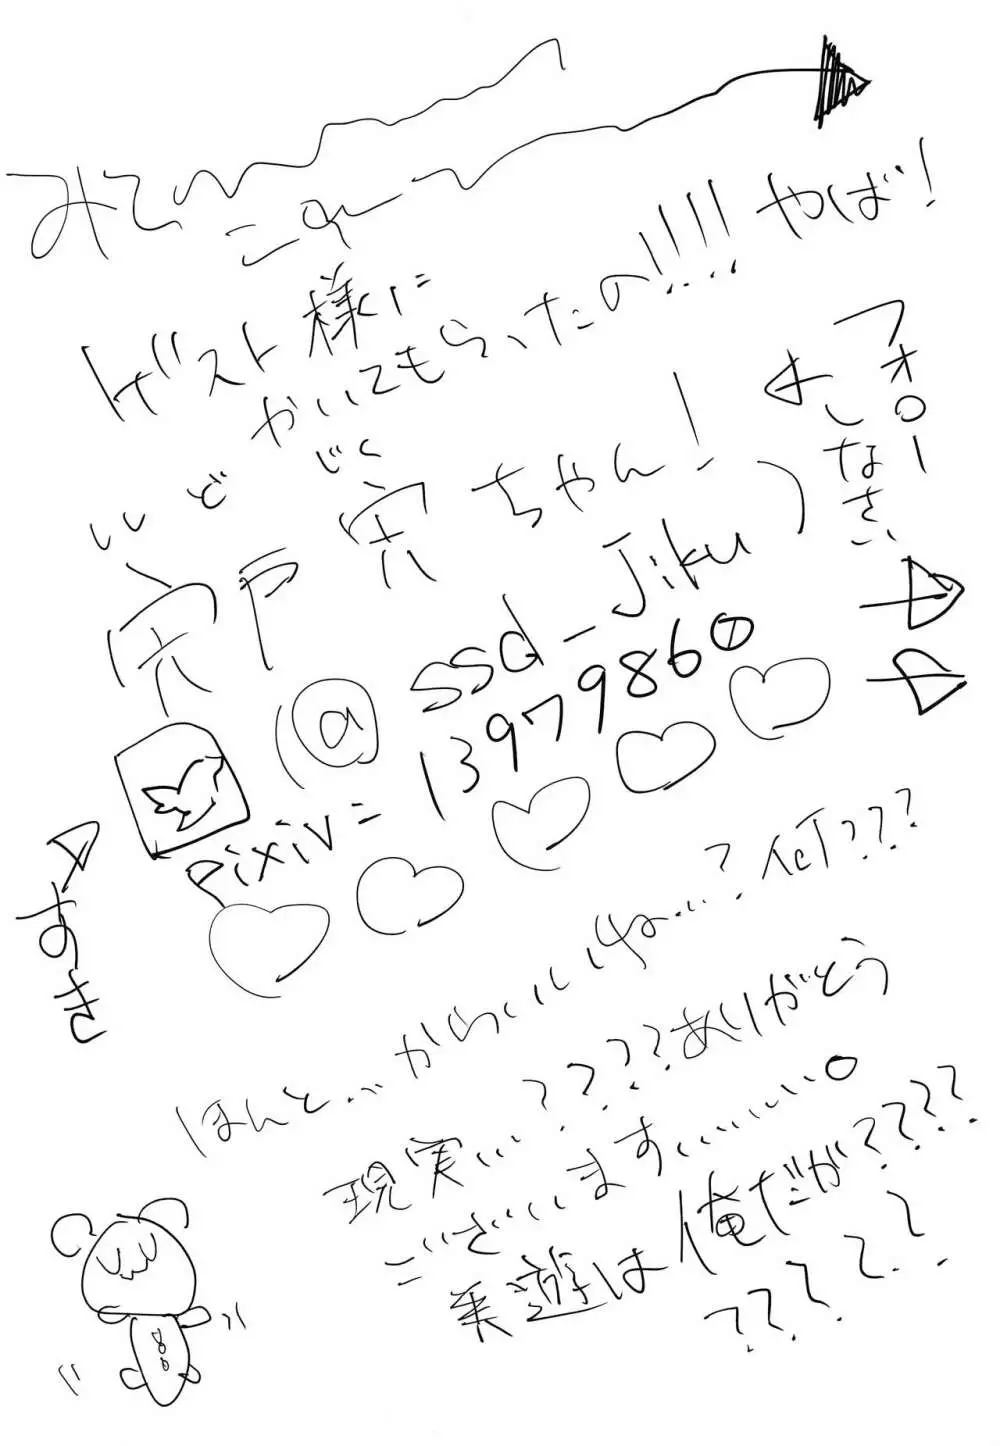 みて
ゲスト様に
かいてもらったの!!!! やば!
ししど じく
宍戸 宍ちゃん!
(@ssd_Jiku)
フォロー
しなさい
pixiv= 13979860
すき
ほんと...からいいね...?何???
現実...????ありがとう
ございます......。
美遊は俺だが????
?????